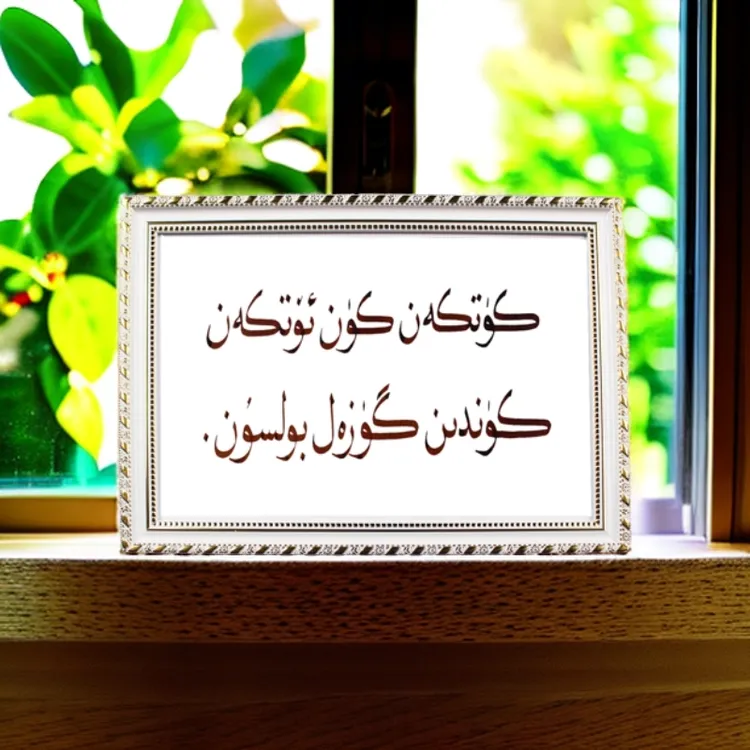 كۈتكەن كۈن ئۆتكەن
كۈندىن گۈزەل بولسۇن.